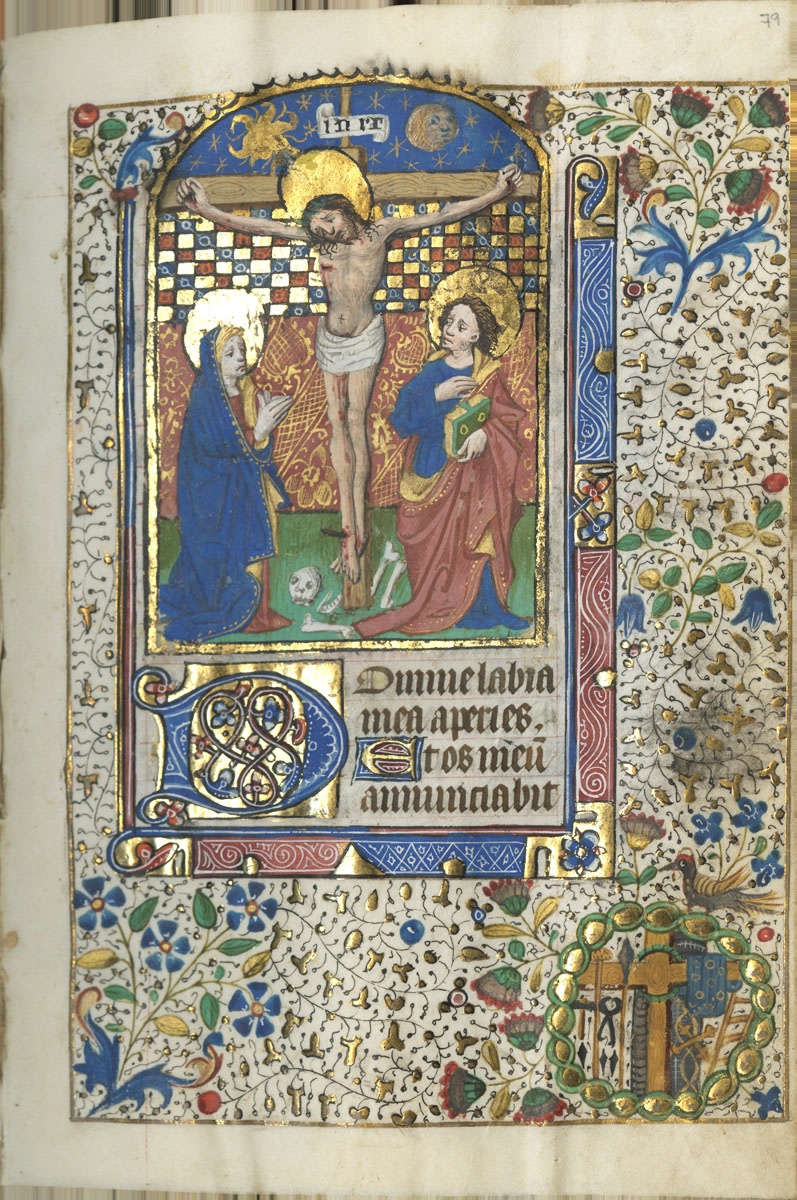 79
inri
Domine labia
mea aperies.
Et os meū
annunciabit